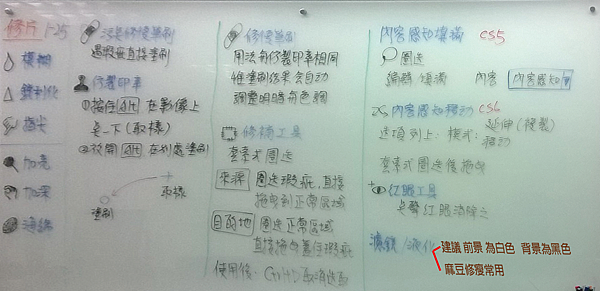 修片 1-25
模糊
銳利化
指尖
加亮
加深
海綿
污點修復筆刷
遇瑕疵直接塗刷
仿製印章
①按住 Alt 在影像上
點一下(取樣)
②放開 Alt 在別處塗刷
取樣
塗刷
修復筆刷
用法與仿製印章相同
惟塗刷結果會自動
調整明暗與色調
修補工具
套索式圈選
來源 圈選瑕疵,直接
拖曳到正常區域
目的地 圈選正常區域
直接拖曳蓋住瑕疵
使用後: Ctrl+D 取消選取
內容感知填滿 CS5
圈選
編輯 填滿 內容 內容感知
內容感知移動 CS6
選項列上: 模式: 延伸(複製)
移動
套索式圈選後拖曳
紅眼工具
點擊紅眼消除之
濾鏡/液化
建議 前景 為白色 背景為黑色
麻豆修瘦常用